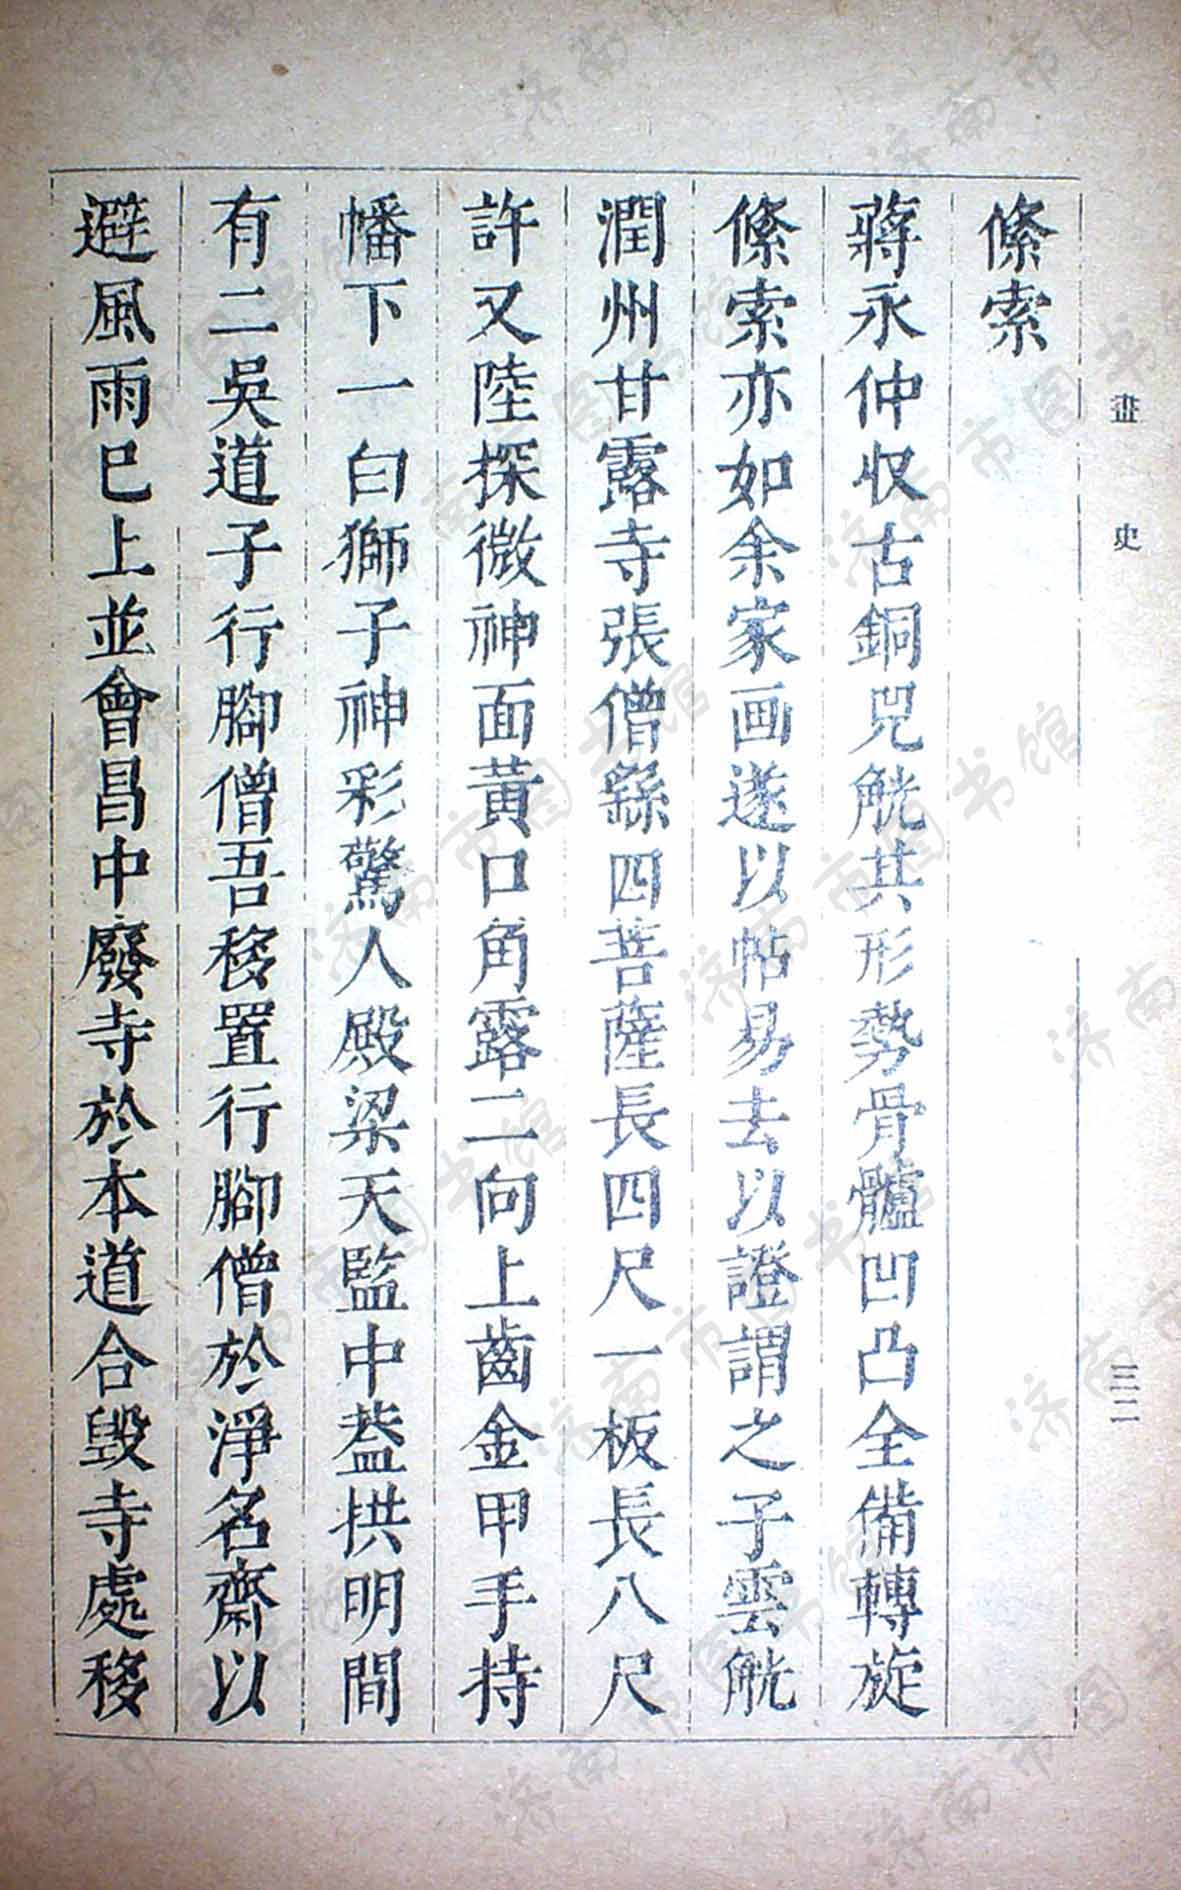 畫史
三二
絛索
蔣永仲收古銅兕觥其形勢骨髗凹凸全備轉旋
絛索亦如余家画遂以帖易去以證謂之子雲觥
潤州甘露寺張僧繇四菩薩長四尺一板長八尺
許又陸探微神面黃口角露二向上齒金甲手持
幡下一白獅子神彩驚人殿梁天監中葢拱明間
有二吳道子行腳僧吾移置行腳僧於淨名齋以
避風雨巳上並會昌中廢寺於本道合毀寺處移
济南市图书馆